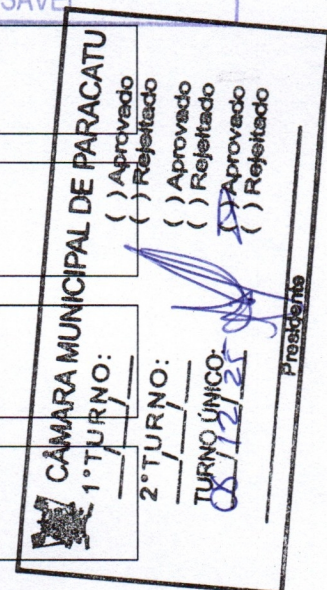 SAVE
CÂMARA MUNICIPAL DE PARACATU
1º TURNO: ( ) Aprovado
___/___/___ ( ) Rejeitado
2º TURNO: ( ) Aprovado
___/___/___ ( ) Rejeitado
TURNO ÚNICO: ( ) Aprovado
08/12/25 ( ) Rejeitado
Presidente